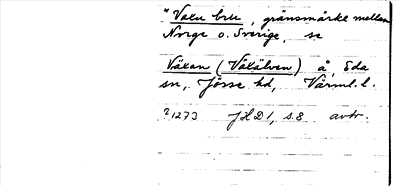 "Vaxu bru, gränsmärke mellan
Norge o. Sverige, se
Växan (Växälven) å, Eda
sn, Jösse hd, Värml. l.
?1273 JHD 1, s. 8 avtr.